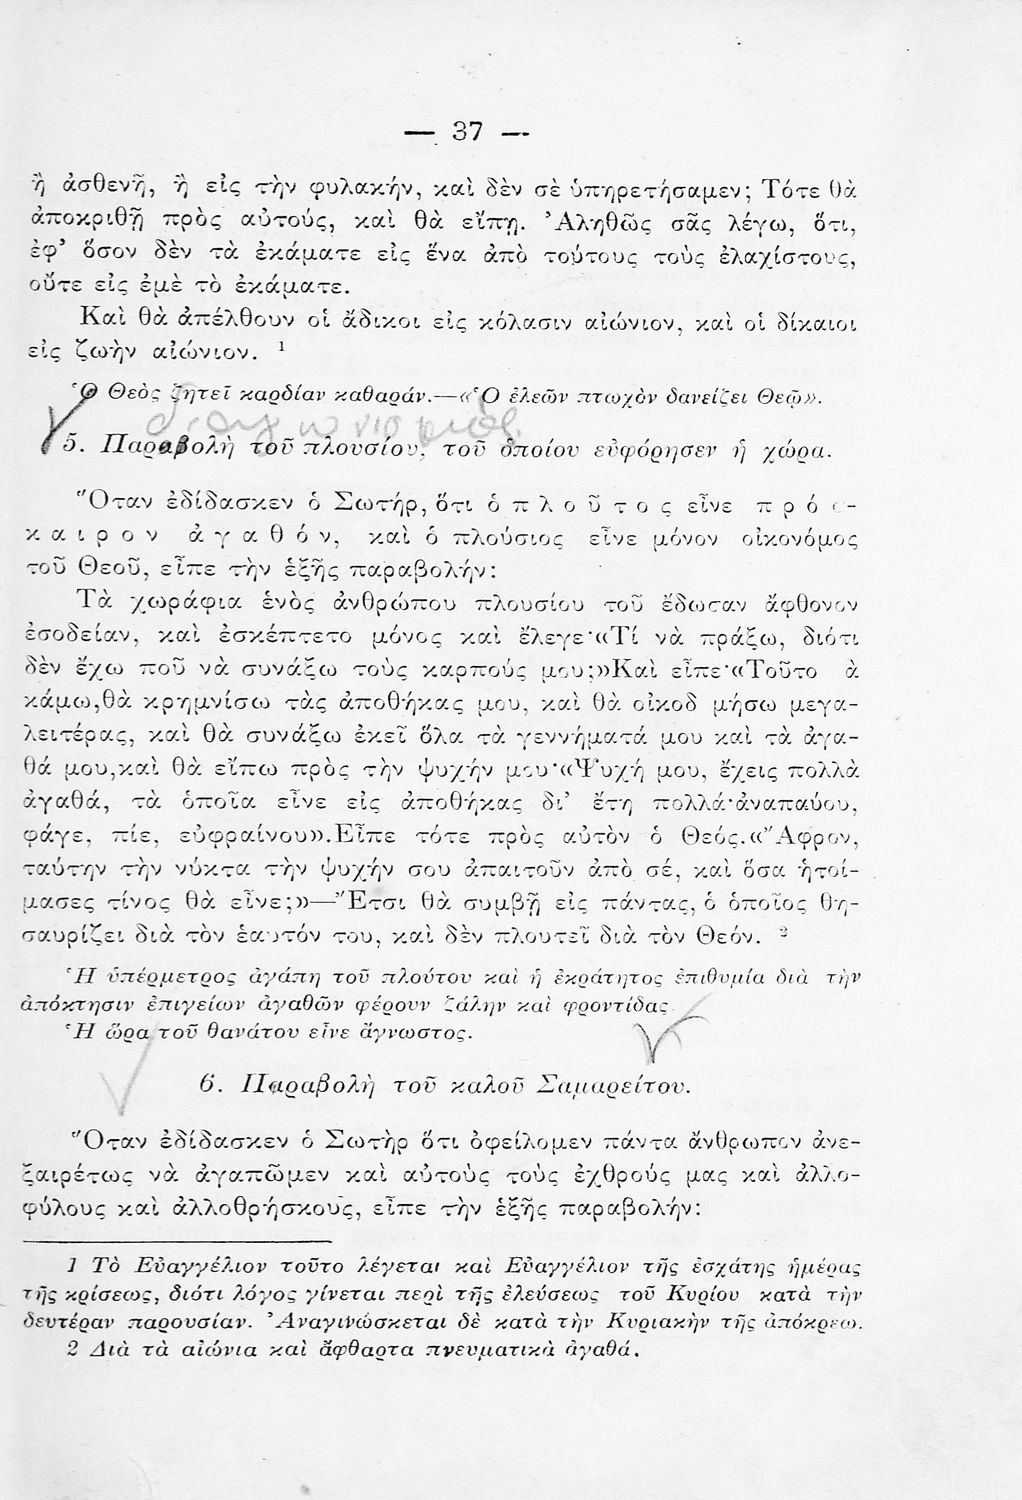 — 37 —
ἢ ἀσθενῆ, ἢ εἰς τὴν φυλακήν, καὶ δὲν σὲ ὑπηρετήσαμεν; Τότε θὰ
ἀποκριθῇ πρὸς αὐτούς, καὶ θὰ εἴπῃ. Ἀληθῶς σᾶς λέγω, ὅτι,
ἐφ’ ὅσον δὲν τὰ ἐκάματε εἰς ἕνα ἀπὸ τούτους τοὺς ἐλαχίστους,
οὔτε εἰς ἐμὲ τὸ ἐκάματε.
Καὶ θὰ ἀπέλθουν οἱ ἄδικοι εἰς κόλασιν αἰώνιον, καὶ οἱ δίκαιοι
εἰς ζωὴν αἰώνιον. ¹
Ὁ Θεὸς ζητεῖ καρδίαν καθαράν.—«Ὁ ἐλεῶν πτωχὸν δανείζει Θεῷ».
5. Παραβολὴ τοῦ πλουσίου, τοῦ ὁποίου εὐφόρησεν ἡ χώρα.
Ὅταν ἐδίδασκεν ὁ Σωτήρ, ὅτι ὁ πλοῦτος εἶνε πρόσ-
καιρον ἀγαθόν, καὶ ὁ πλούσιος εἶνε μόνον οἰκονόμος
τοῦ Θεοῦ, εἶπε τὴν ἑξῆς παραβολήν:
Τὰ χωράφια ἑνὸς ἀνθρώπου πλουσίου τοῦ ἔδωσαν ἄφθονον
ἐσοδείαν, καὶ ἐσκέπτετο μόνος καὶ ἔλεγε·«Τί νὰ πράξω, διότι
δὲν ἔχω ποῦ νὰ συνάξω τοὺς καρπούς μου;»Καὶ εἶπε·«Τοῦτο ὰ
κάμω,θὰ κρημνίσω τὰς ἀποθήκας μου, καὶ θὰ οἰκοδ μήσω μεγα-
λειτέρας, καὶ θὰ συνάξω ἐκεῖ ὅλα τὰ γεννήματά μου καὶ τὰ ἀγα-
θά μου,καὶ θὰ εἴπω πρὸς τὴν ψυχήν μου·«Ψυχή μου, ἔχεις πολλὰ
ἀγαθά, τὰ ὁποῖα εἶνε εἰς ἀποθήκας δι’ ἔτη πολλά·ἀναπαύου,
φάγε, πίε, εὐφραίνου».Εἶπε τότε πρὸς αὐτὸν ὁ Θεός.«Ἄφρον,
ταύτην τὴν νύκτα τὴν ψυχήν σου ἀπαιτοῦν ἀπὸ σέ, καὶ ὅσα ἡτοί-
μασες τίνος θὰ εἶνε;»—Ἔτσι θὰ συμβῇ εἰς πάντας, ὁ ὁποῖος θη-
σαυρίζει διὰ τὸν ἑαυτόν του, καὶ δὲν πλουτεῖ διὰ τὸν Θεόν. ²
Ἡ ὑπέρμετρος ἀγάπη τοῦ πλούτου καὶ ἡ ἐκράτητος ἐπιθυμία διὰ τὴν
ἀπόκτησιν ἐπιγείων ἀγαθῶν φέρουν ζάλην καὶ φροντίδας.
Ἡ ὥρα τοῦ θανάτου εἶνε ἄγνωστος.
6. Παραβολὴ τοῦ καλοῦ Σαμαρείτου.
Ὅταν ἐδίδασκεν ὁ Σωτὴρ ὅτι ὀφείλομεν πάντα ἄνθρωπον ἀνε-
ξαιρέτως νὰ ἀγαπῶμεν καὶ αὐτοὺς τοὺς ἐχθρούς μας καὶ ἀλλο-
φύλους καὶ ἀλλοθρήσκους, εἶπε τὴν ἑξῆς παραβολήν:
1 Τὸ Εὐαγγέλιον τοῦτο λέγεται καὶ Εὐαγγέλιον τῆς ἐσχάτης ἡμέρας
τῆς κρίσεως, διότι λόγος γίνεται περὶ τῆς ἐλεύσεως τοῦ Κυρίου κατὰ τὴν
δευτέραν παρουσίαν. Ἀναγινώσκεται δὲ κατὰ τὴν Κυριακὴν τῆς ἀπόκρεω.
2 Διὰ τὰ αἰώνια καὶ ἄφθαρτα πνευματικὰ ἀγαθά.